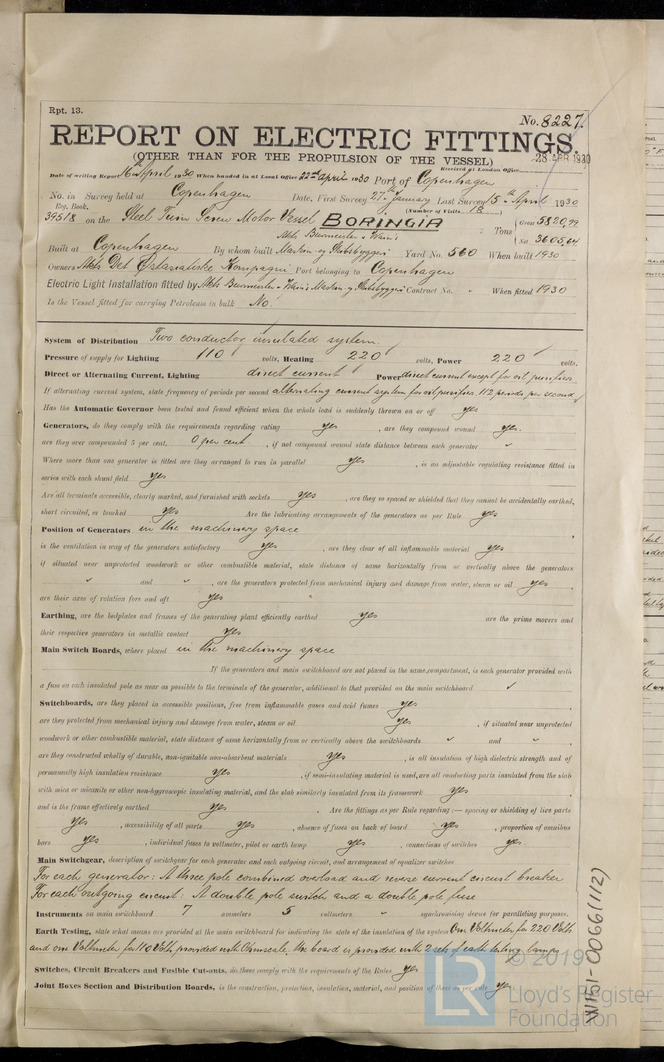 Rpt. 13.
No. 8227.
REPORT ON ELECTRIC FITTINGS.
(OTHER THAN FOR THE PROPULSION OF THE VESSEL)
28 APR 1930
Date of writing Report 16th April 1930 When handed in at Local Office 22nd April 1930 Port of Copenhagen Received at London Office
No. in Survey held at Copenhagen Date, First Survey 27th January Last Survey 15th April 1930
Reg. Book. (Number of Visits 18)
39518 on the Steel Twin Screw Motor Vessel BORINGIA Tons { Gross 5820,99
Net 3605,64
Built at Copenhagen By whom built Akts Burmeister & Wain's Maskin og Skibsbyggeri Yard No. 560 When built 1930
Owners Akts Det Østasiatiske Kompagni Port belonging to Copenhagen
Electric Light Installation fitted by Akts Burmeister & Wain's Maskin og Skibsbyggeri Contract No. " When fitted 1930
Is the Vessel fitted for carrying Petroleum in bulk No.
System of Distribution Two conductor insulated system.
Pressure of supply for Lighting 110 volts, Heating 220 volts, Power 220 volts.
Direct or Alternating Current, Lighting direct current Power direct current except for oil purifiers
If alternating current system, state frequency of periods per second alternating current system for oil purifiers 112 periods per second
Has the Automatic Governor been tested and found efficient when the whole load is suddenly thrown on or off yes
Generators, do they comply with the requirements regarding rating yes, are they compound wound yes.
are they over compounded 5 per cent. 0 per cent, if not compound wound state distance between each generator "
Where more than one generator is fitted are they arranged to run in parallel yes, is an adjustable regulating resistance fitted in
series with each shunt field yes
Are all terminals accessible, clearly marked, and furnished with sockets yes, are they so spaced or shielded that they cannot be accidentally earthed,
short circuited, or touched yes Are the lubricating arrangements of the generators as per Rule yes
Position of Generators in the machinery space
is the ventilation in way of the generators satisfactory yes, are they clear of all inflammable material yes
if situated near unprotected woodwork or other combustible material, state distance of same horizontally from or vertically above the generators
" and ", are the generators protected from mechanical injury and damage from water, steam or oil yes,
are their axes of rotation fore and aft yes
Earthing, are the bedplates and frames of the generating plant efficiently earthed yes are the prime movers and
their respective generators in metallic contact yes
Main Switch Boards, where placed in the machinery space
If the generators and main switchboard are not placed in the same compartment, is each generator provided with
a fuse on each insulated pole as near as possible to the terminals of the generator, additional to that provided on the main switchboard
Switchboards, are they placed in accessible positions, free from inflammable gases and acid fumes yes
are they protected from mechanical injury and damage from water, steam or oil yes, if situated near unprotected
woodwork or other combustible material, state distance of same horizontally from or vertically above the switchboards " and ",
are they constructed wholly of durable, non-ignitable non-absorbent materials yes, is all insulation of high dielectric strength and of
permanently high insulation resistance yes, if semi-insulating material is used, are all conducting parts insulated from the slab
with mica or micanite or other non-hygroscopic insulating material, and the slab similarly insulated from its framework yes
and is the frame effectively earthed yes. Are the fittings as per Rule regarding :— spacing or shielding of live parts
yes, accessibility of all parts yes, absence of fuses on back of board yes, proportion of omnibus
bars yes, individual fuses to voltmeter, pilot or earth lamp yes, connections of switches yes
Main Switchgear, description of switchgear for each generator and each outgoing circuit, and arrangement of equalizer switches
For each generator: A three pole combined overload and reverse current circuit breaker
For each outgoing circuit: A double pole switch and a double pole fuse
Instruments on main switchboard 7 ammeters 5 voltmeters " synchronising device for paralleling purposes.
Earth Testing, state what means are provided at the main switchboard for indicating the state of the insulation of the system One Voltmeter for 220 Volts
and one Voltmeter for 110 Volts provided with Ohmscale. The board is provided with 2 sets of earth testing lamps
Switches, Circuit Breakers and Fusible Cut-outs, do these comply with the requirements of the Rules yes
Joint Boxes Section and Distribution Boards, is the construction, protection, insulation, material, and position of these as per rule yes
© 2019
LR
Lloyd's Register
Foundation
W1151-0066(1/2)